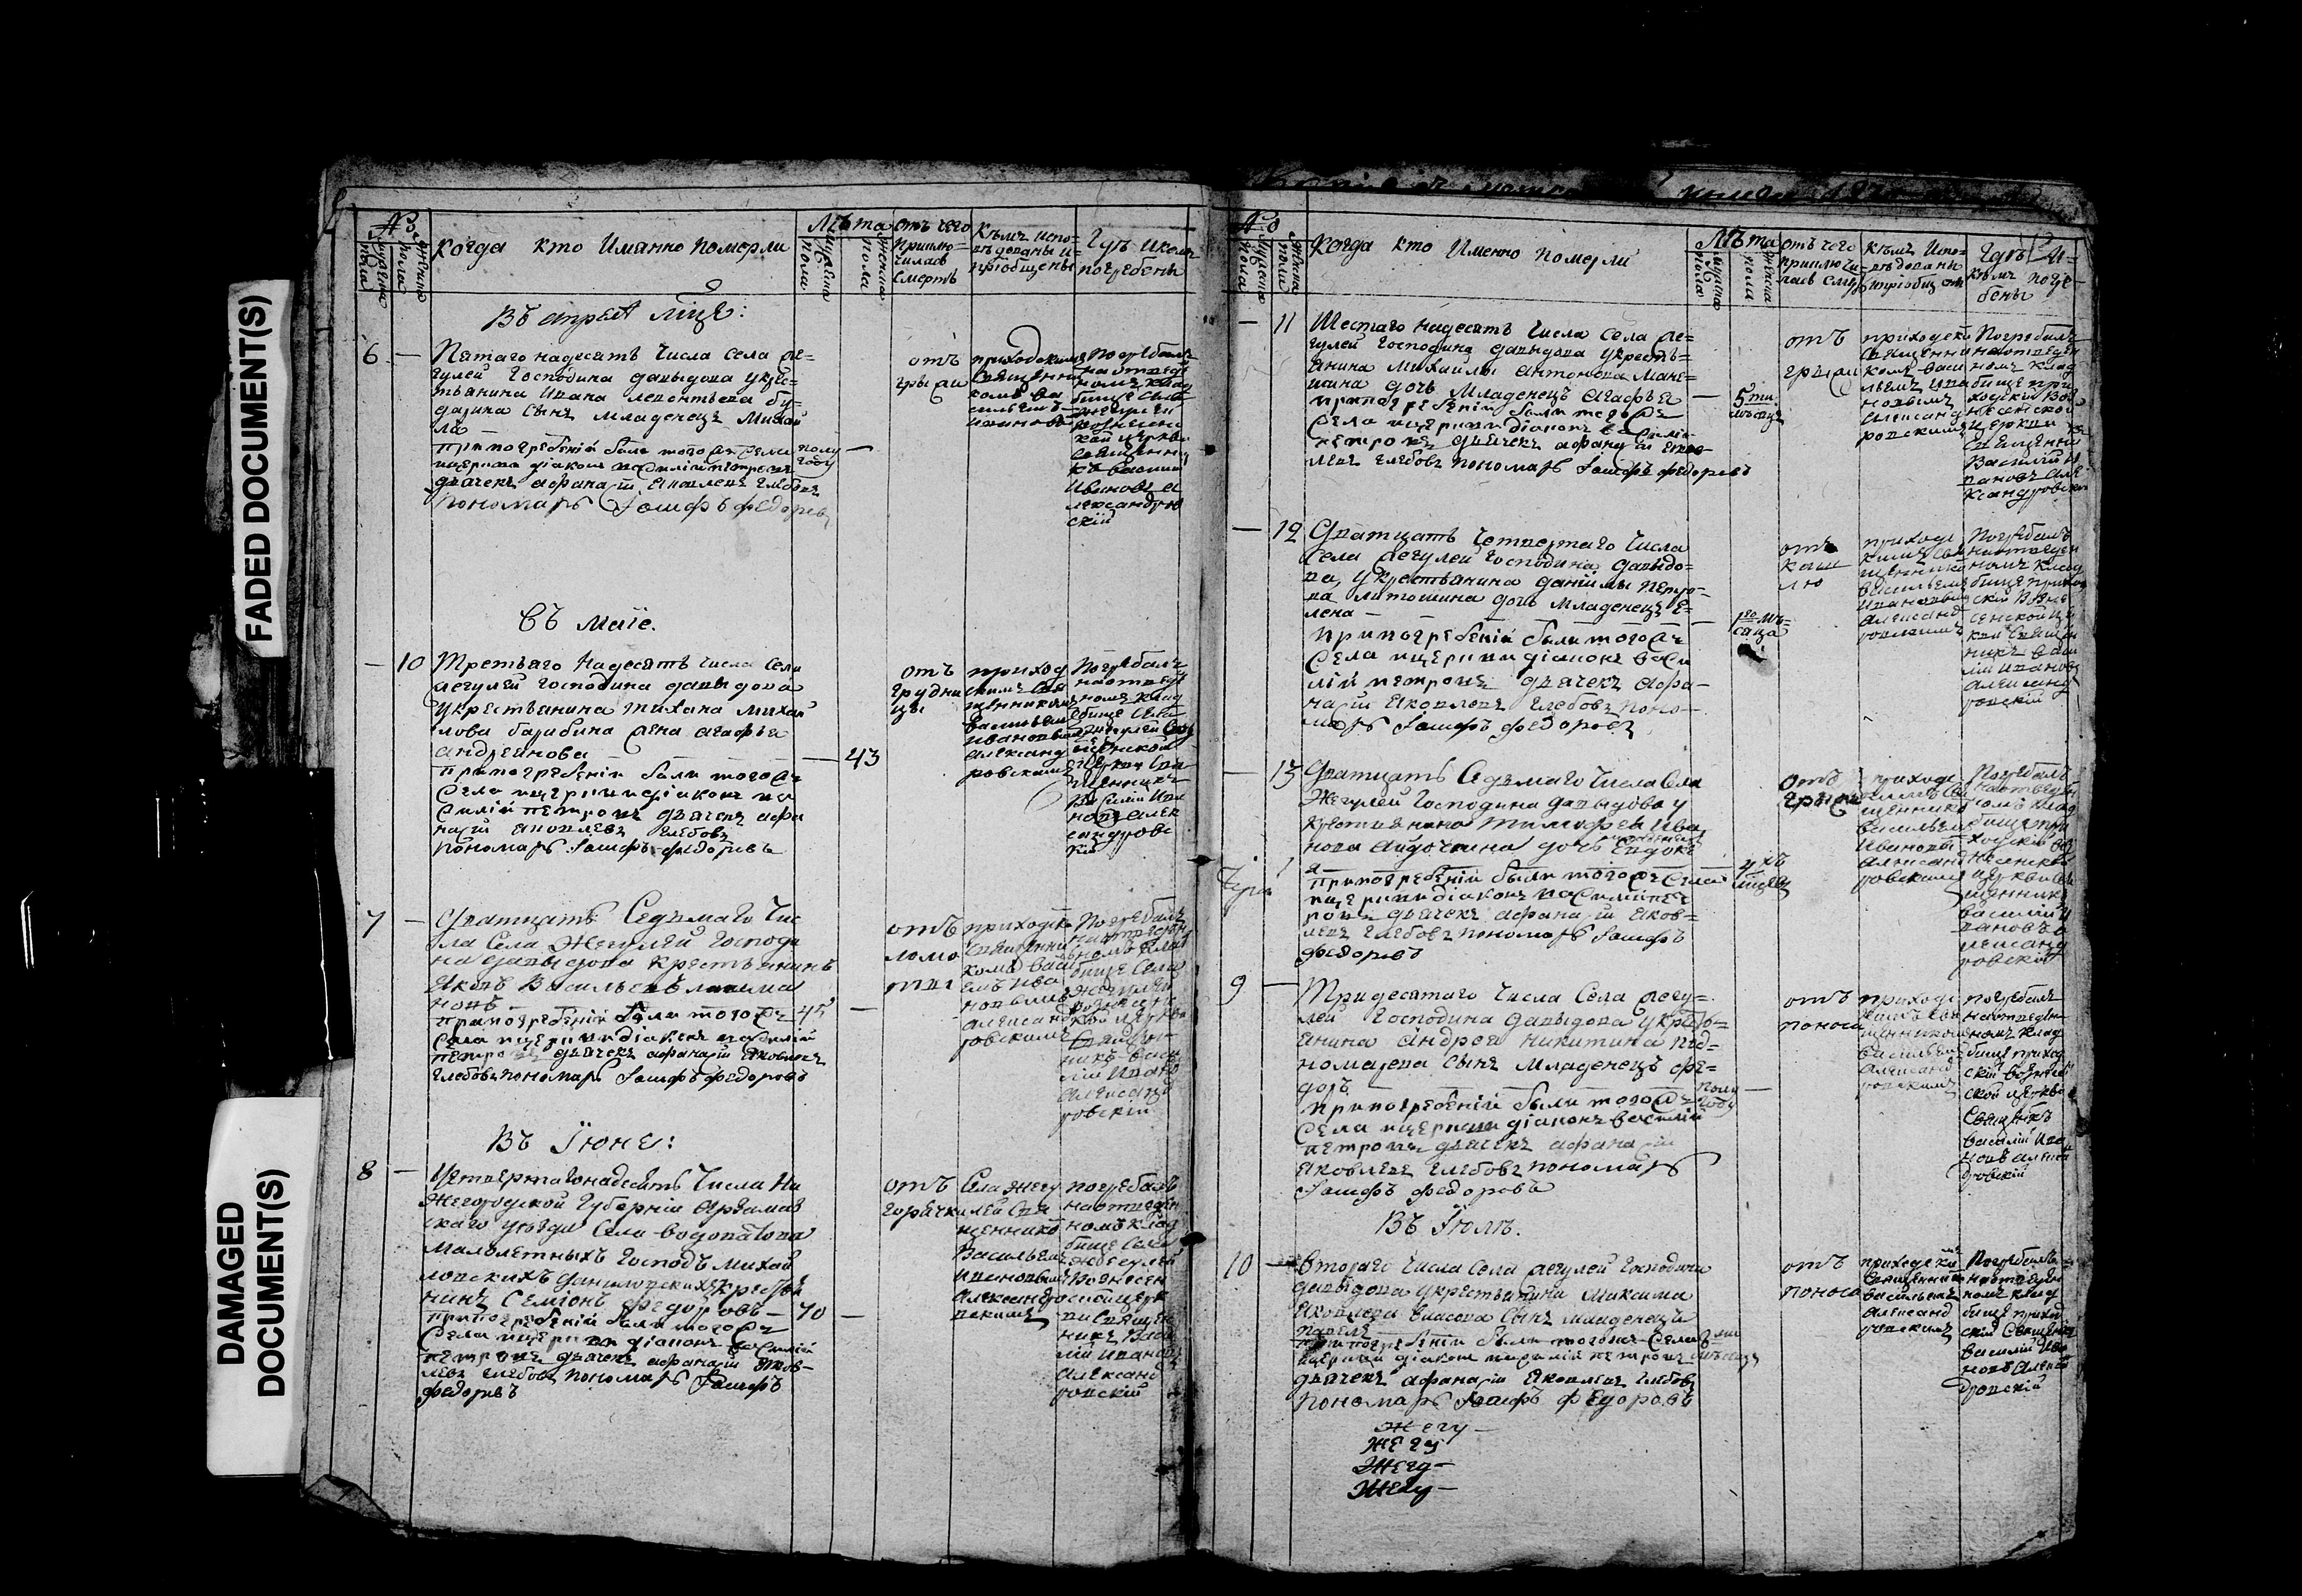 FADED DOCUMENT(S)
DAMAGED
DOCUMENT(S)
Когда кто Имянно померли
Лѣта
отъ чего
приклю=
чилась
смерть
Кѣмъ испо=
вѣдованы и
пріобщены
Гдѣ и кемъ
погребены
Въ апрелѣ мцѣ:
6 —
Пятаго надесять числа села Же=
гулей Господина давыдова укрес=
тьянина Ивана леонтьева бу=
дагина сынъ младенецъ Михай
ла —
при погребеніи были тогожъ села
церкви діаконъ василій петровъ
дьячекъ афанасій яковлевъ глебовъ
пономарь Іосифъ федоровъ
полу
году
—
отъ
грыжи
приходскимъ
священни
комъ ва
сильемъ
ивановы
погребалъ
на отведен
номъ клад
бище села
жегулей
вознесен
кой церкви
священни
къ василій
Ивановъ а
лександров
скій
Въ маіе.
— 10
Третьяго надесять числа села
Жегулей господина давыдова
укрестьянина тихана михай
лова барабина жена агафья
андреянова
— 43
при погребеніи были тогожъ
села церкви діаконъ ва
силій петровъ дьячекъ афа
насій яковлевъ глебовъ
пономарь Іосифъ федоровъ
отъ
грудни
цы
приход
скимъ свя
щенникомъ
васильем
ивановым
александ
ровскимъ
погребалъ
на отведе
номъ клад
бище села
жегулей воз
несенской
церкви свя
щенникъ
василій ива
новъ алек
сандровс
кій
7 —
Дватцать Седьмаго чис
ла Села Жегулей господи
на давыдова крестьянинъ
Яковъ Васильевъ
новъ
45 —
при погребеніи были тогожъ
села церкви діаконъ василій
петровъ дьячекъ афанасій яковлевъ
глебовъ пономарь Іосифъ федоровъ
отъ
ломо
ты
приходски
священни
комъ васи
емъ ива
новымъ
александ
ровскимъ
погребалъ
на отведен
номъ клад
бище села
жегулей
вознесенс
кой церкви
священ
никъ васи
лій ивано
александ
ровскій
Въ Іюне:
8 —
Четвертагонадесять числа Ни
жегородской Губерніи Арзамас
скаго уезда Села водоватова
малолетныхъ Господъ михай
ловскихъ даниловскихъ крестья
нинъ Семіонъ Федоровъ —
70 —
при погребеніи были тогожъ
села церкви діаконъ василій
петровъ дьячекъ афанасій яков=
левъ глебовъ пономарь Іосифъ
федоровъ
отъ
горячки
Села жегу
лей свя
щенникомъ
Васильемъ
ивановым
александро
вскимъ
погребалъ
на отведен
номъ клад
бище села
жегулей
вознесен
ской церк
ви священ
никъ васи
лій ивановъ
александ
ровскій
Когда кто Именно померли
Лѣта
отъ чего
приключи=
лась смер
Кѣмъ испо=
вѣдованы
и пріобщены
Гдѣ и
кѣмъ погре=
бены
— 11
Шестаго надесять числа села Же=
гулей господина давыдова укресть=
янина Михайлы антонова мане=
шина дочь младенецъ агафья —
при погребеніи были тогожъ
села церкви діаконъ василій
петровъ дьячекъ афанасій яков=
левъ глебовъ пономарь Іосифъ федоровъ
5ти
мѣсяцъ
отъ
грыжи
приходски
священни
комъ васи
льемъ ива
новымъ
александ
ровскимъ
погребалъ
на отведен
номъ клад
бище при
ходской воз
несенской
церкви
священни
василій и
вановъ але
ксандровскій
— 12
Дватцать четвертаго числа
Села Жегулей Господина давыдо=
ва, укрестьянина данилы петро=
ва латошина дочь младенецъ е=
лена —
при погребеніи были тогожъ
села церкви діаконъ васи
лій петровъ дьячекъ афа=
насій яковлевъ глебовъ поно=
марь Іосифъ федоровъ
1го мѣ=
сяца
отъ
каш
лю
приходс
кимъ свя
щенником
васильемъ
ивановым
александ
ровскимъ
погребалъ
на отведен
номъ клад
бище приход
ской возне
сенской це
кви священ
никъ васи
лій ивановъ
александ
ровскій
— 13
Дватцать Седьмаго числа села
Жегулей господина давыдова у
крестьянина тимофея ива
нова авдочкина дочь младенецъ Евдокі
я —
при погребеніи были тогожъ села
церкви діаконъ василій пет
ровъ дьячекъ афанасій яков=
левъ глебовъ пономарь Іосифъ
федоровъ
4хъ
мцевъ
отъ
грыжи
приходс
кимъ свя
щеннико
васильем
ивановы
александ
ровскимъ
погребалъ
на отведен
номъ клад
бище при
ходской воз
несенской
церкви свя
щенникъ
василій и
вановъ а
лександ
ровскій
9 —
Тридесятаго числа Села Жегу=
лей Господина давыдова укресть=
янина андрея никитина под=
номарева сынъ младенецъ фе=
доръ
при погребеніи были тогожъ
села церкви діаконъ василій
петровъ дьячекъ афанасій
яковлевъ глебовъ пономарь
Іосифъ федоровъ
полу
году
—
отъ
поноса
приходс
кимъ свя
щенником
васильемъ
александ
ровскимъ
погребалъ
на отведен
номъ клад
бище приход
ской вознесен
ской церкви
священникъ
василій ива
новъ алекса
дровскій
Въ Іюлѣ.
10 —
Втораго числа села Жегулей господина
давыдова укрестьянина максима
яковлева власова сынъ младенецъ
павелъ
при погребеніи были тогожъ села
церкви діаконъ василій петровъ
дьячекъ афанасій яковлевъ глебовъ
пономарь Іосифъ федоровъ
отъ
поноса
приходскимъ
священником
васильемъ
александ
ровскимъ
погребалъ
на отведен
номъ клад
бище приход
ской священни
василій ива
новъ алексан
дровскій
Жегу —
Жегу
Жегу —
Жегу —